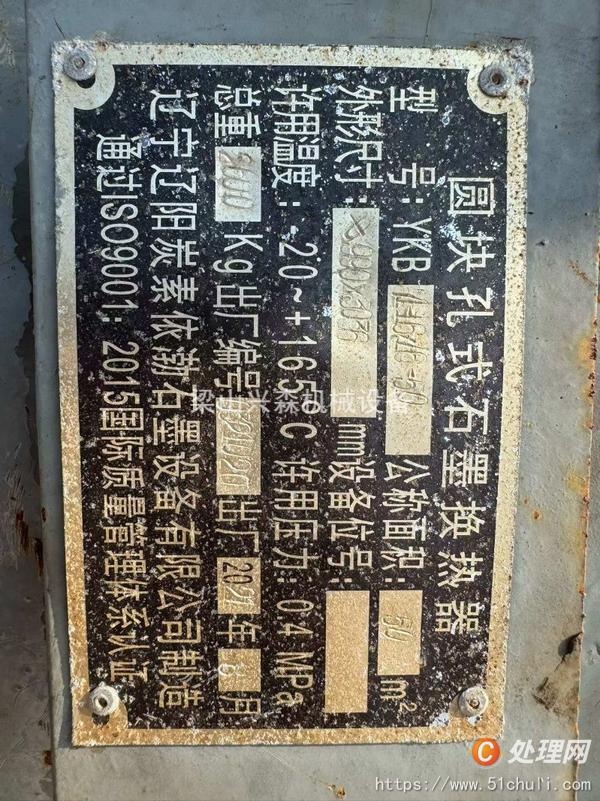 圆块孔式石墨换热器
型 号: YKB 公称面积: 50 m²
外形尺寸: mm设备位号:
许用温度: -20~+165℃ 许用压力: 0.4 MPa
总重 2600 Kg出厂编号 出厂 2021 年 8 月
辽宁辽阳炭素依勃石墨设备有限公司制造
通过ISO9001: 2015国际质量管理体系认证
梁山兴森机械设备
C 处理网
https://www.51chuli.com